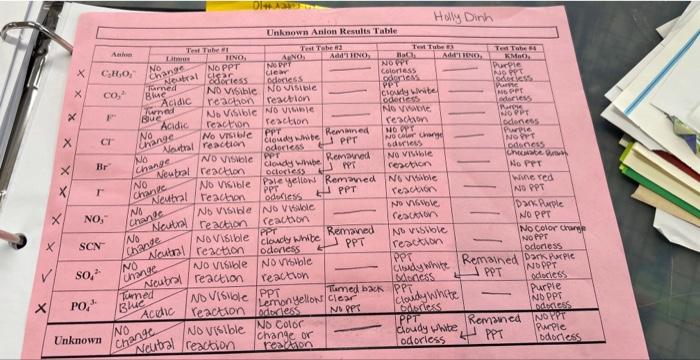 Holly Dinh
Unknown Anion Results Table
Test Tube #1 Test Tube #2 Test Tube #3 Test Tube #4
Anion Litmus HNO₃ AgNO₃ Add'l HNO₃ BaCl₂ Add'l HNO₃ KMnO₄
X C₂H₃O₂⁻ No Change Neutral No PPT clear odorless No PPT clear odorless — No PPT Colorless odorless — Purple No PPT odorless
X CO₃²⁻ Turned Blue Acidic No Visible reaction No Visible reaction — PPT cloudy white odorless — Purple No PPT odorless
X F⁻ Turned Blue Acidic No Visible reaction No Visible reaction — No Visible reaction — Purple No PPT odorless
X Cl⁻ No Change Neutral No Visible reaction PPT cloudy white odorless Remained PPT No PPT No color change odorless — Purple No PPT odorless
X Br⁻ No Change Neutral No Visible reaction PPT cloudy white odorless Remained PPT No Visible reaction — Chocolate Brown No PPT
X I⁻ No Change Neutral No Visible reaction Pale yellow PPT odorless Remained PPT No Visible reaction — Wine red No PPT
X NO₃⁻ No Change Neutral No Visible reaction No Visible reaction — No Visible reaction — Dark Purple No PPT
X SCN⁻ No Change Neutral No Visible reaction PPT cloudy white odorless Remained PPT No Visible reaction — No Color change No PPT odorless
✓ SO₄²⁻ No Change Neutral No Visible reaction No Visible reaction — PPT cloudy white odorless Remained PPT Dark Purple No PPT odorless
X PO₄³⁻ Turned Blue Acidic No Visible reaction PPT Lemon yellow odorless Turned back clear No PPT PPT cloudy white odorless — Purple No PPT odorless
Unknown No Change Neutral No Visible reaction No Color change or reaction — PPT cloudy white odorless Remained PPT No PPT Purple odorless